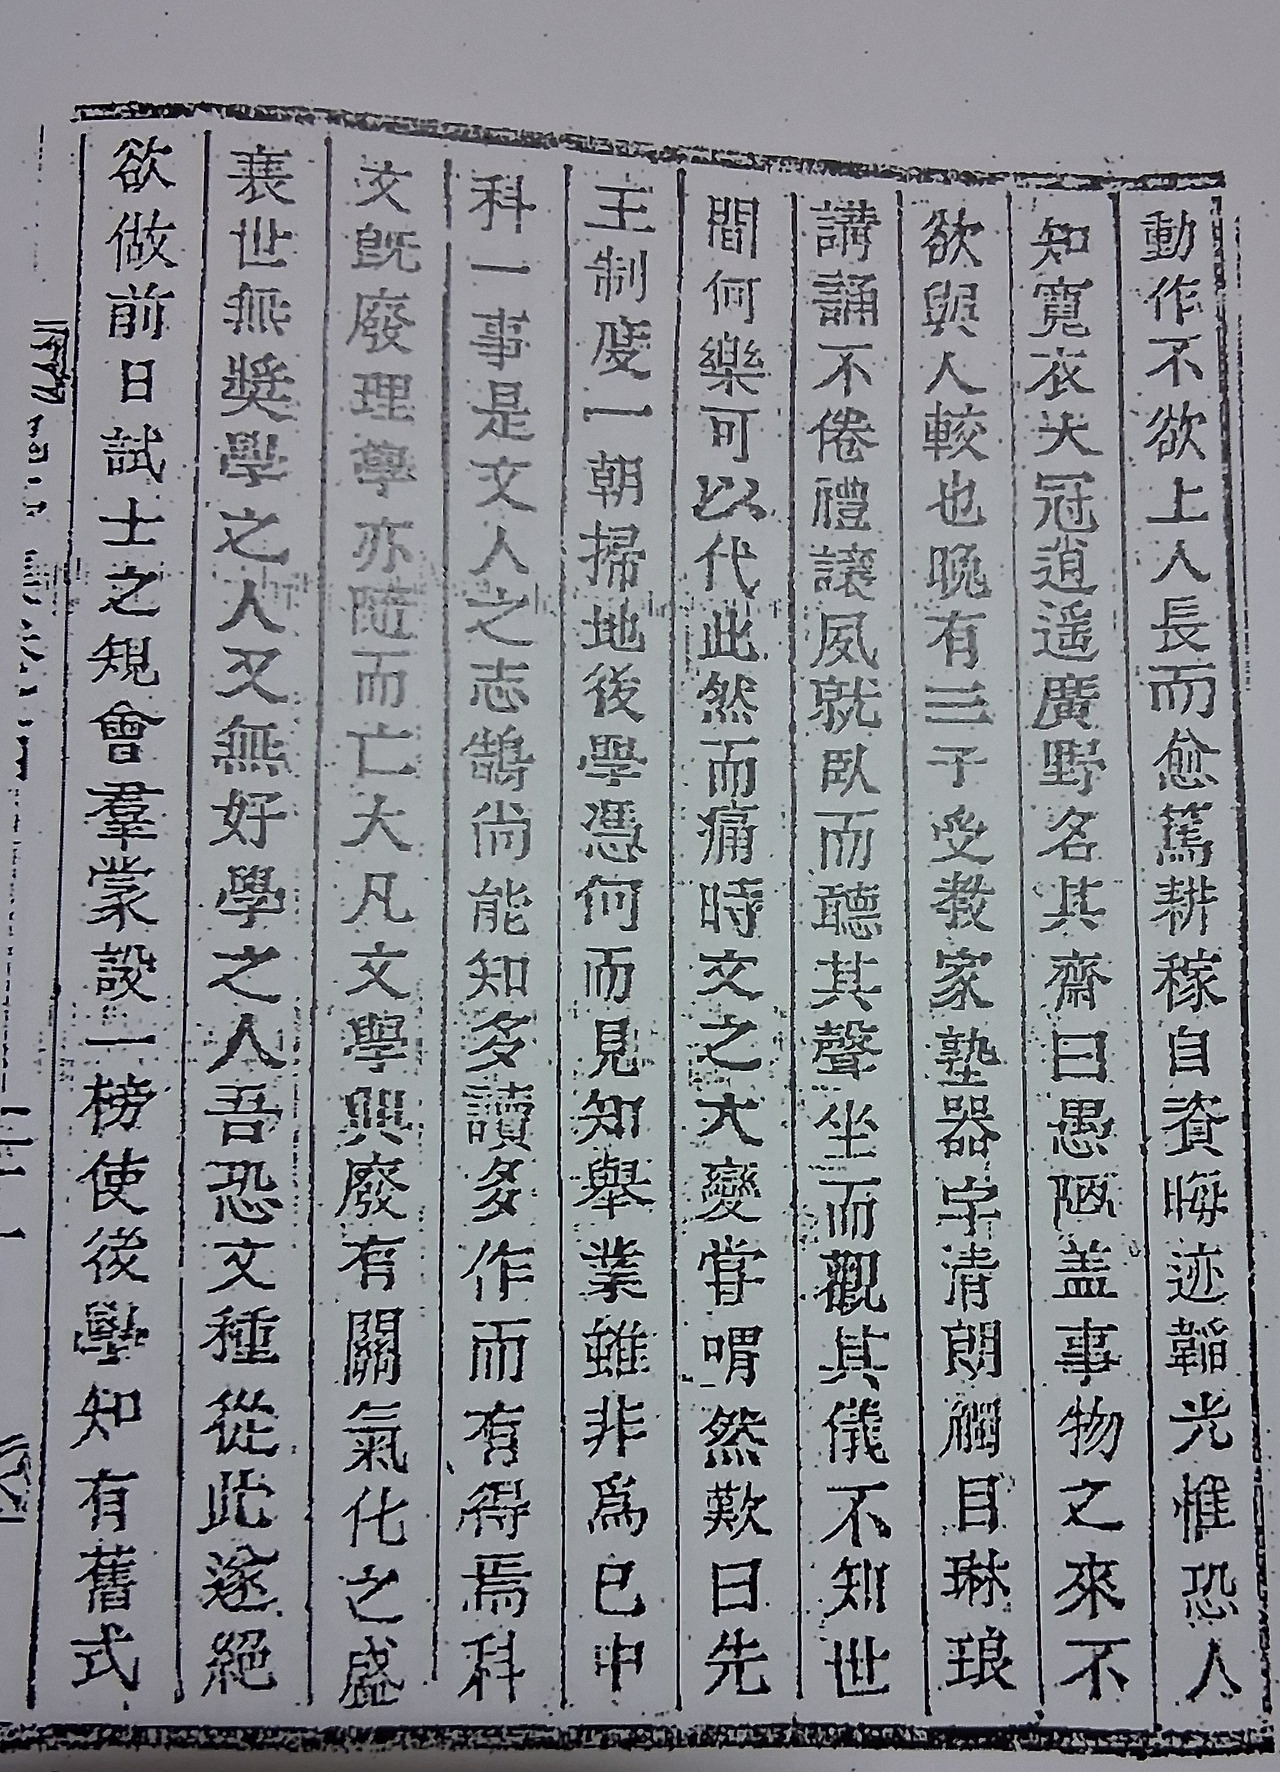 動作不欲上人長而愈篤耕稼自資晦迹韜光惟恐人
知寬衣大冠逍遥廣野名其齋曰愚陋盖事物之來不
欲與人較也晩有三子受教家塾器宇清朗觸目琳琅
講誦不倦禮讓夙就臥而聽其聲坐而觀其儀不知世
間何樂可以代此然而痛時文之大變甞喟然歎曰先
王制度一朝掃地後學憑何而見知舉業雖非爲已中
科一事是文人之志鵠尚能知多讀多作而有得焉科
文旣廢理學亦隨而亡大凡文學興廢有關氣化之盛
衰世無奬學之人又無好學之人吾恐文種從此遂絕
欲做前日試士之規會羣蒙設一榜使後學知有舊式